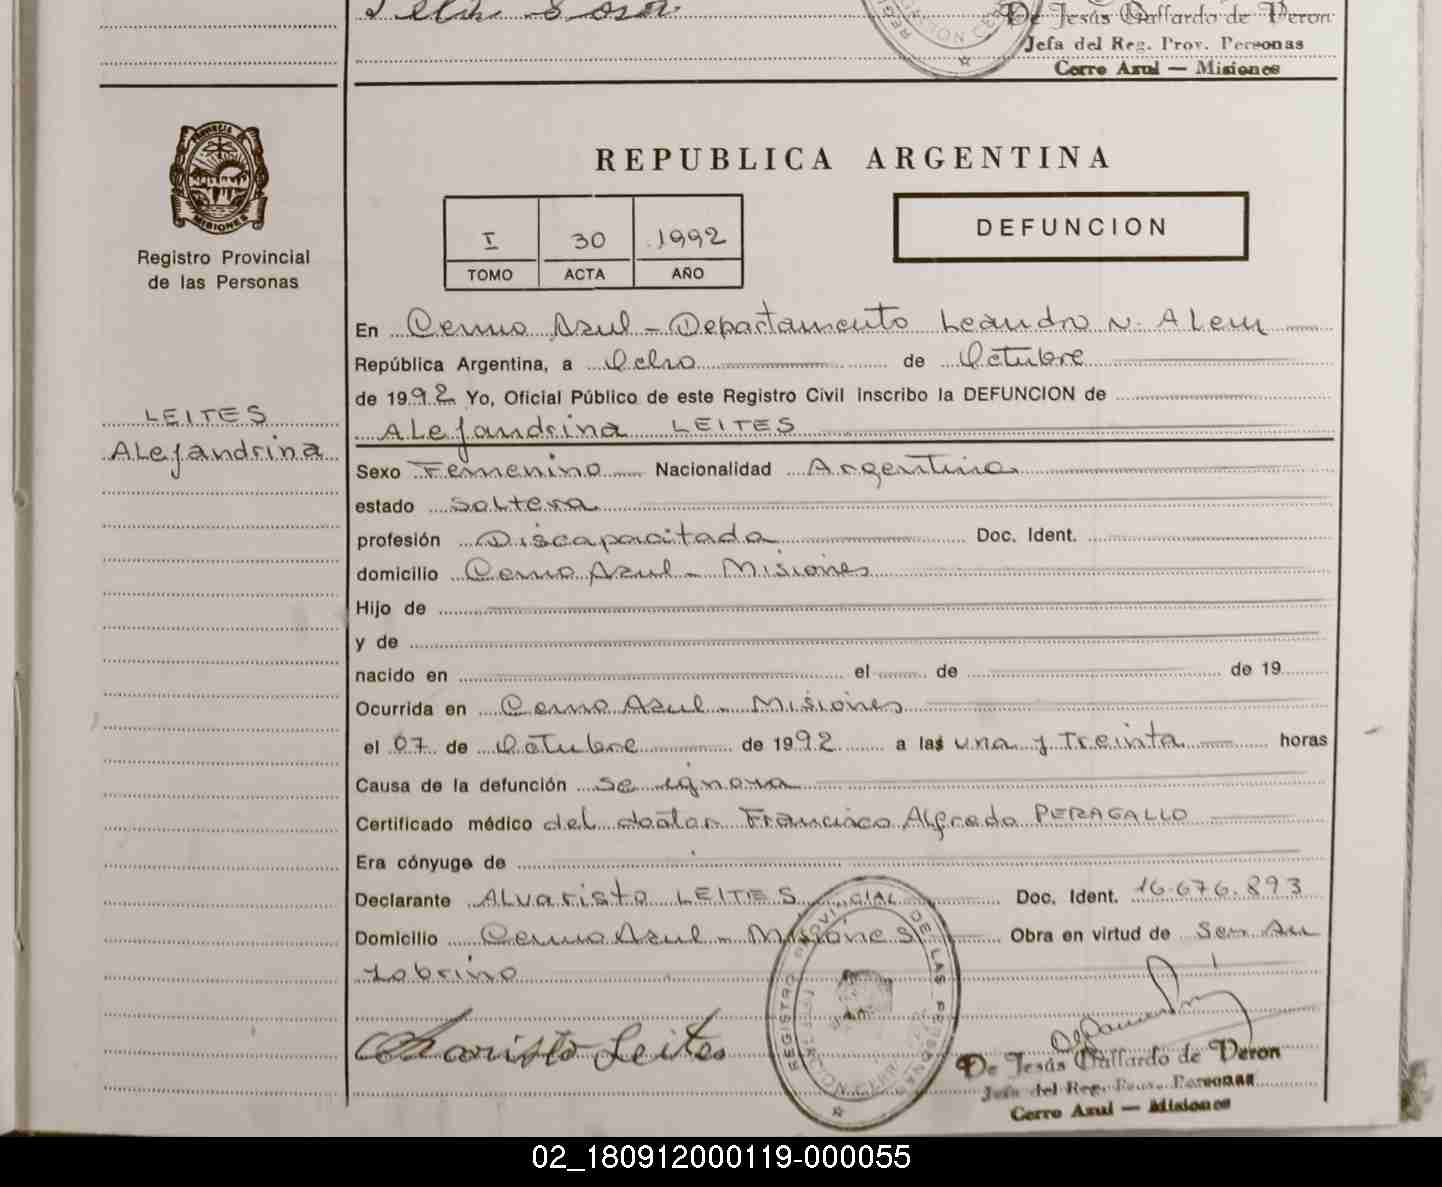 De Jesús Gallardo de Veron
Jefa del Reg. Prov. Personas
Cerro Azul — Misiones
PROVINCIA DE
MISIONES
Registro Provincial
de las Personas
REPUBLICA ARGENTINA
I 30 1992
TOMO ACTA AÑO
DEFUNCION
En Cerro Azul - Departamento Leandro N. Alem
República Argentina, a Ocho de Octubre
de 1992 Yo, Oficial Público de este Registro Civil Inscribo la DEFUNCION de
Alejandrina LEITES
LEITES
Alejandrina
Sexo Femenino Nacionalidad Argentina
estado Soltera
profesión Discapacitada Doc. Ident.
domicilio Cerro Azul - Misiones
Hijo de
y de
nacido en el de de 19
Ocurrida en Cerro Azul - Misiones
el 07 de Octubre de 1992 a las una y Treinta horas
Causa de la defunción se ignora
Certificado médico del doctor Francisco Alfredo PERAGALLO
Era cónyuge de
Declarante Alvaristo LEITES Doc. Ident. 16.676.893
Domicilio Cerro Azul - Misiones Obra en virtud de Ser
REGISTRO PROVINCIAL DE LAS PERSONAS
Leites
De Jesús Gallardo de Veron
Jefa del Reg. Prov. Personas
Cerro Azul — Misiones
02_180912000119-000055